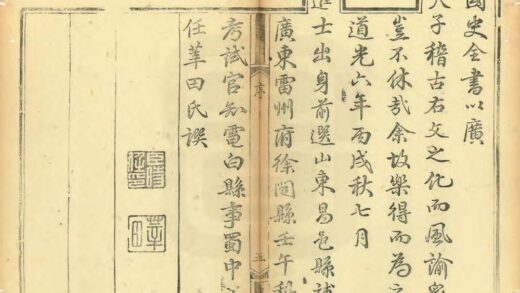 國史全書以廣
子稽古右文之化而風諭
豈不休哉余故樂得而為
道光六年丙戌秋七月
進士出身前選山東昌邑縣
廣東雷州府徐聞縣壬午科
序
五
考試官知電白縣事蜀中
任華田氏譔